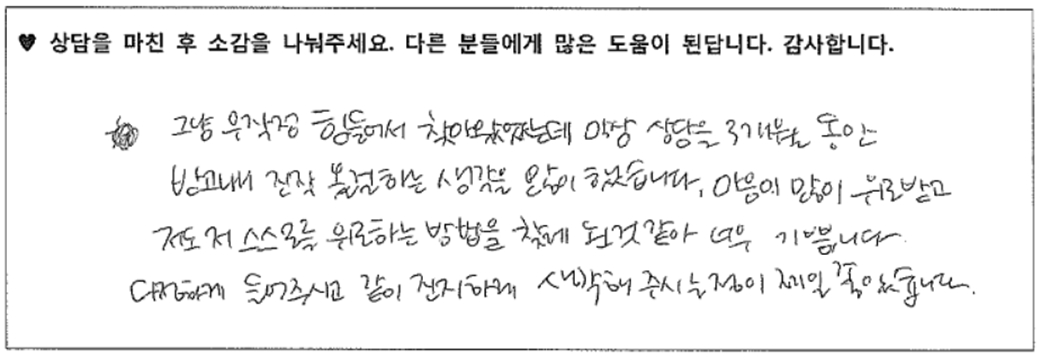 ♥ 상담을 마친 후 소감을 나눠주세요. 다른 분들에게 많은 도움이 된답니다. 감사합니다.
그냥 무작정 힘들어서 찾아왔었는데 막상 상담을 3개월 동안
받고나니 진작 올걸하는 생각을 많이 했습니다. 마음이 많이 위로받고
저도 저 스스로를 위로하는 방법을 찾게 된것 같아 너무 기쁩니다.
다정하게 들어주시고 같이 진지하게 생각해 주시는점이 제일 좋았습니다.